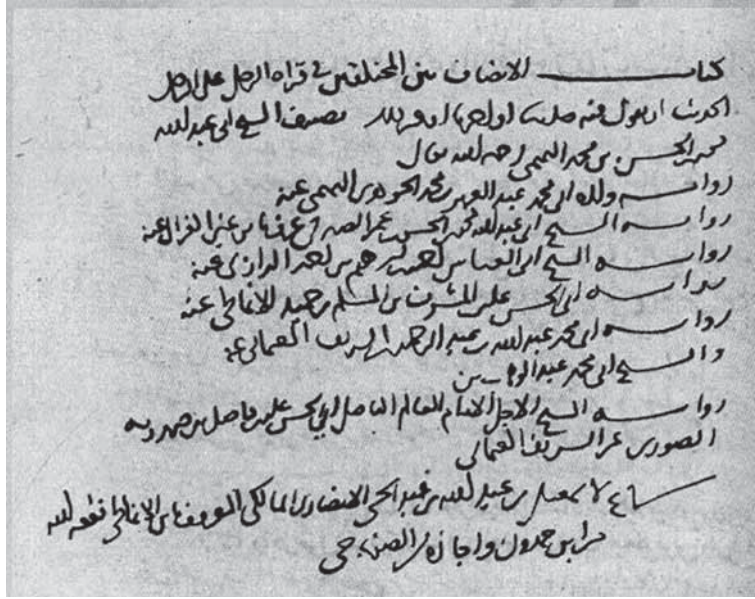 كتاب الانصاف بين المختلفين في قراءة الرجل على الرجل
الحديث ان يقول فيه حدثنا او اخبرنا تصنيف الشيخ ابي عبد الله
محمد بن الحسن بن محمد التميمي رحمه الله تعالى
رواية ولده ابي محمد عبد العزيز بن محمد الجوهري التميمي عنه
رواية الشيخ ابي عبد الله محمد بن الحسن بن عمر عرف بابن الغزال عنه
رواية الشيخ ابي العباس احمد بن ابرهيم بن احمد الرازي عنه
رواية ابي الحسن علي بن المشرف بن المسلم بن حميد الانماطي عنه
رواية ابي محمد عبد الله بن عبد الرحمن الشريف العثماني عنه
والشيخ ابي محمد عبد الوهاب بن
رواية الشيخ الاجل الامام العالم الفاضل ابي الحسن علي بن فاضل بن حمدون
الصوري عن الشريف العثماني
سماع لاسمعيل بن عبد الله بن عبد المحسن الانصاري المالكي المعروف بابن الانماطي نفعه الله
من ابن حمدون واجازة من